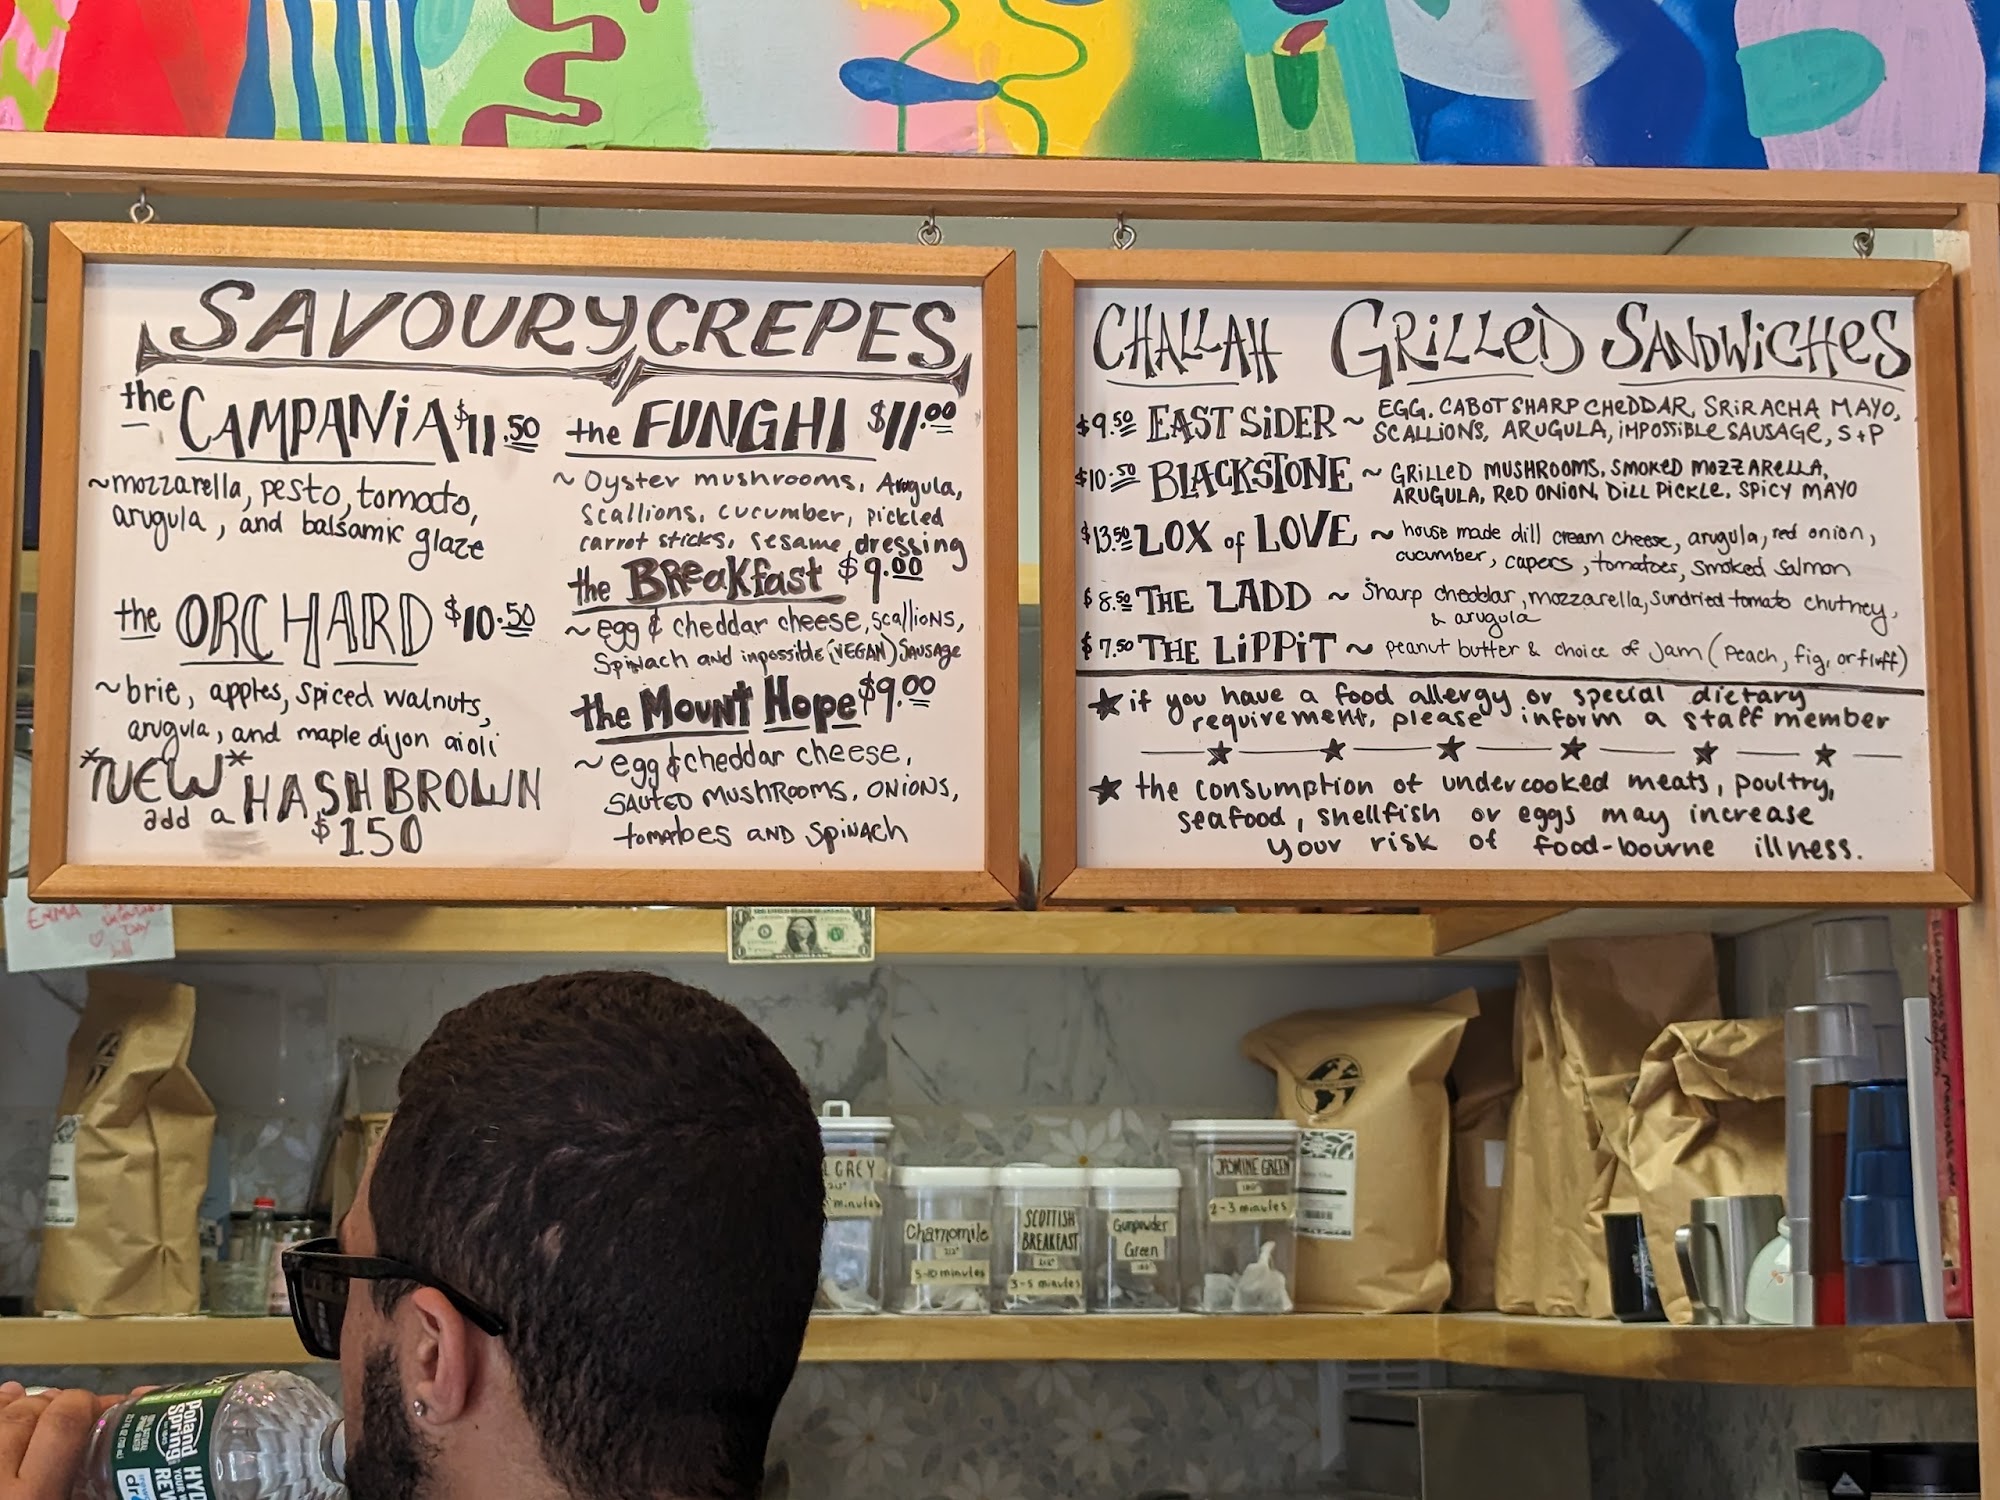 SAVOURY CREPES
the CAMPANiA $11.50
~mozzarella, pesto, tomato,
arugula, and balsamic glaze
the ORCHARD $10.50
~brie, apples, spiced walnuts,
arugula, and maple dijon aioli
*NEW* HASHBROWN
add a
$1.50
the FUNGHI $11.00
~Oyster mushrooms, Arugula,
scallions, cucumber, pickled
carrot sticks, sesame dressing
the Breakfast $9.00
~egg & cheddar cheese, scallions,
Spinach and impossible (VEGAN) Sausage
the Mount Hope $9.00
~egg & cheddar cheese,
SAUTED MUSHROOMS, ONIONS,
tomatoes AND SpiNACH
CHALLAH GRiLLeD SANDWiCHeS
$9.50 EAST SiDER ~ EGG, CABOT SHARP CHeDDAR, SRiRACHA MAYO,
SCALLiONS, ARUGULA, iMPOSSiBLe SAUSAGE, S+P
$10.50 BLACKSTONE ~ GRiLLeD MUSHROOMS, SMOKeD MOZZARELLA,
ARUGULA, ReD ONiON, DiLL PiCKLe, SPiCY MAYO
$13.50 LOX of LOVE ~ house made dill cream cheese, arugula, red onion,
cucumber, capers, tomatoes, smoked salmon
$8.50 THE LADD ~ sharp cheddar, mozzarella, sundried tomato chutney,
& arugula
$7.50 THE LiPPiT ~ peanut butter & choice of jam (peach, fig, or fluff)
★ if you have a food allergy or special dietary
requirement, please inform a staff member
★ the consumption of undercooked meats, poultry,
seafood, shellfish or eggs may increase
your risk of food-bourne illness.
EMMA
L GREY
212°
minutes
Chamomile
212°
5-10 minutes
SCOTTISH
BREAKFAST
3-5 minutes
Gunpowder
Green
180°
JASMINE GREEN
180°
2-3 minutes
Poland
Spring